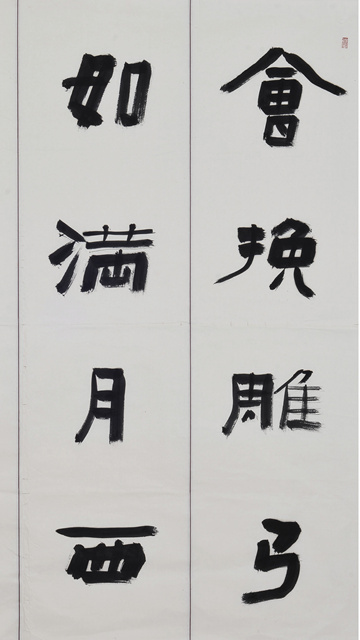 會挽雕弓
如滿月西